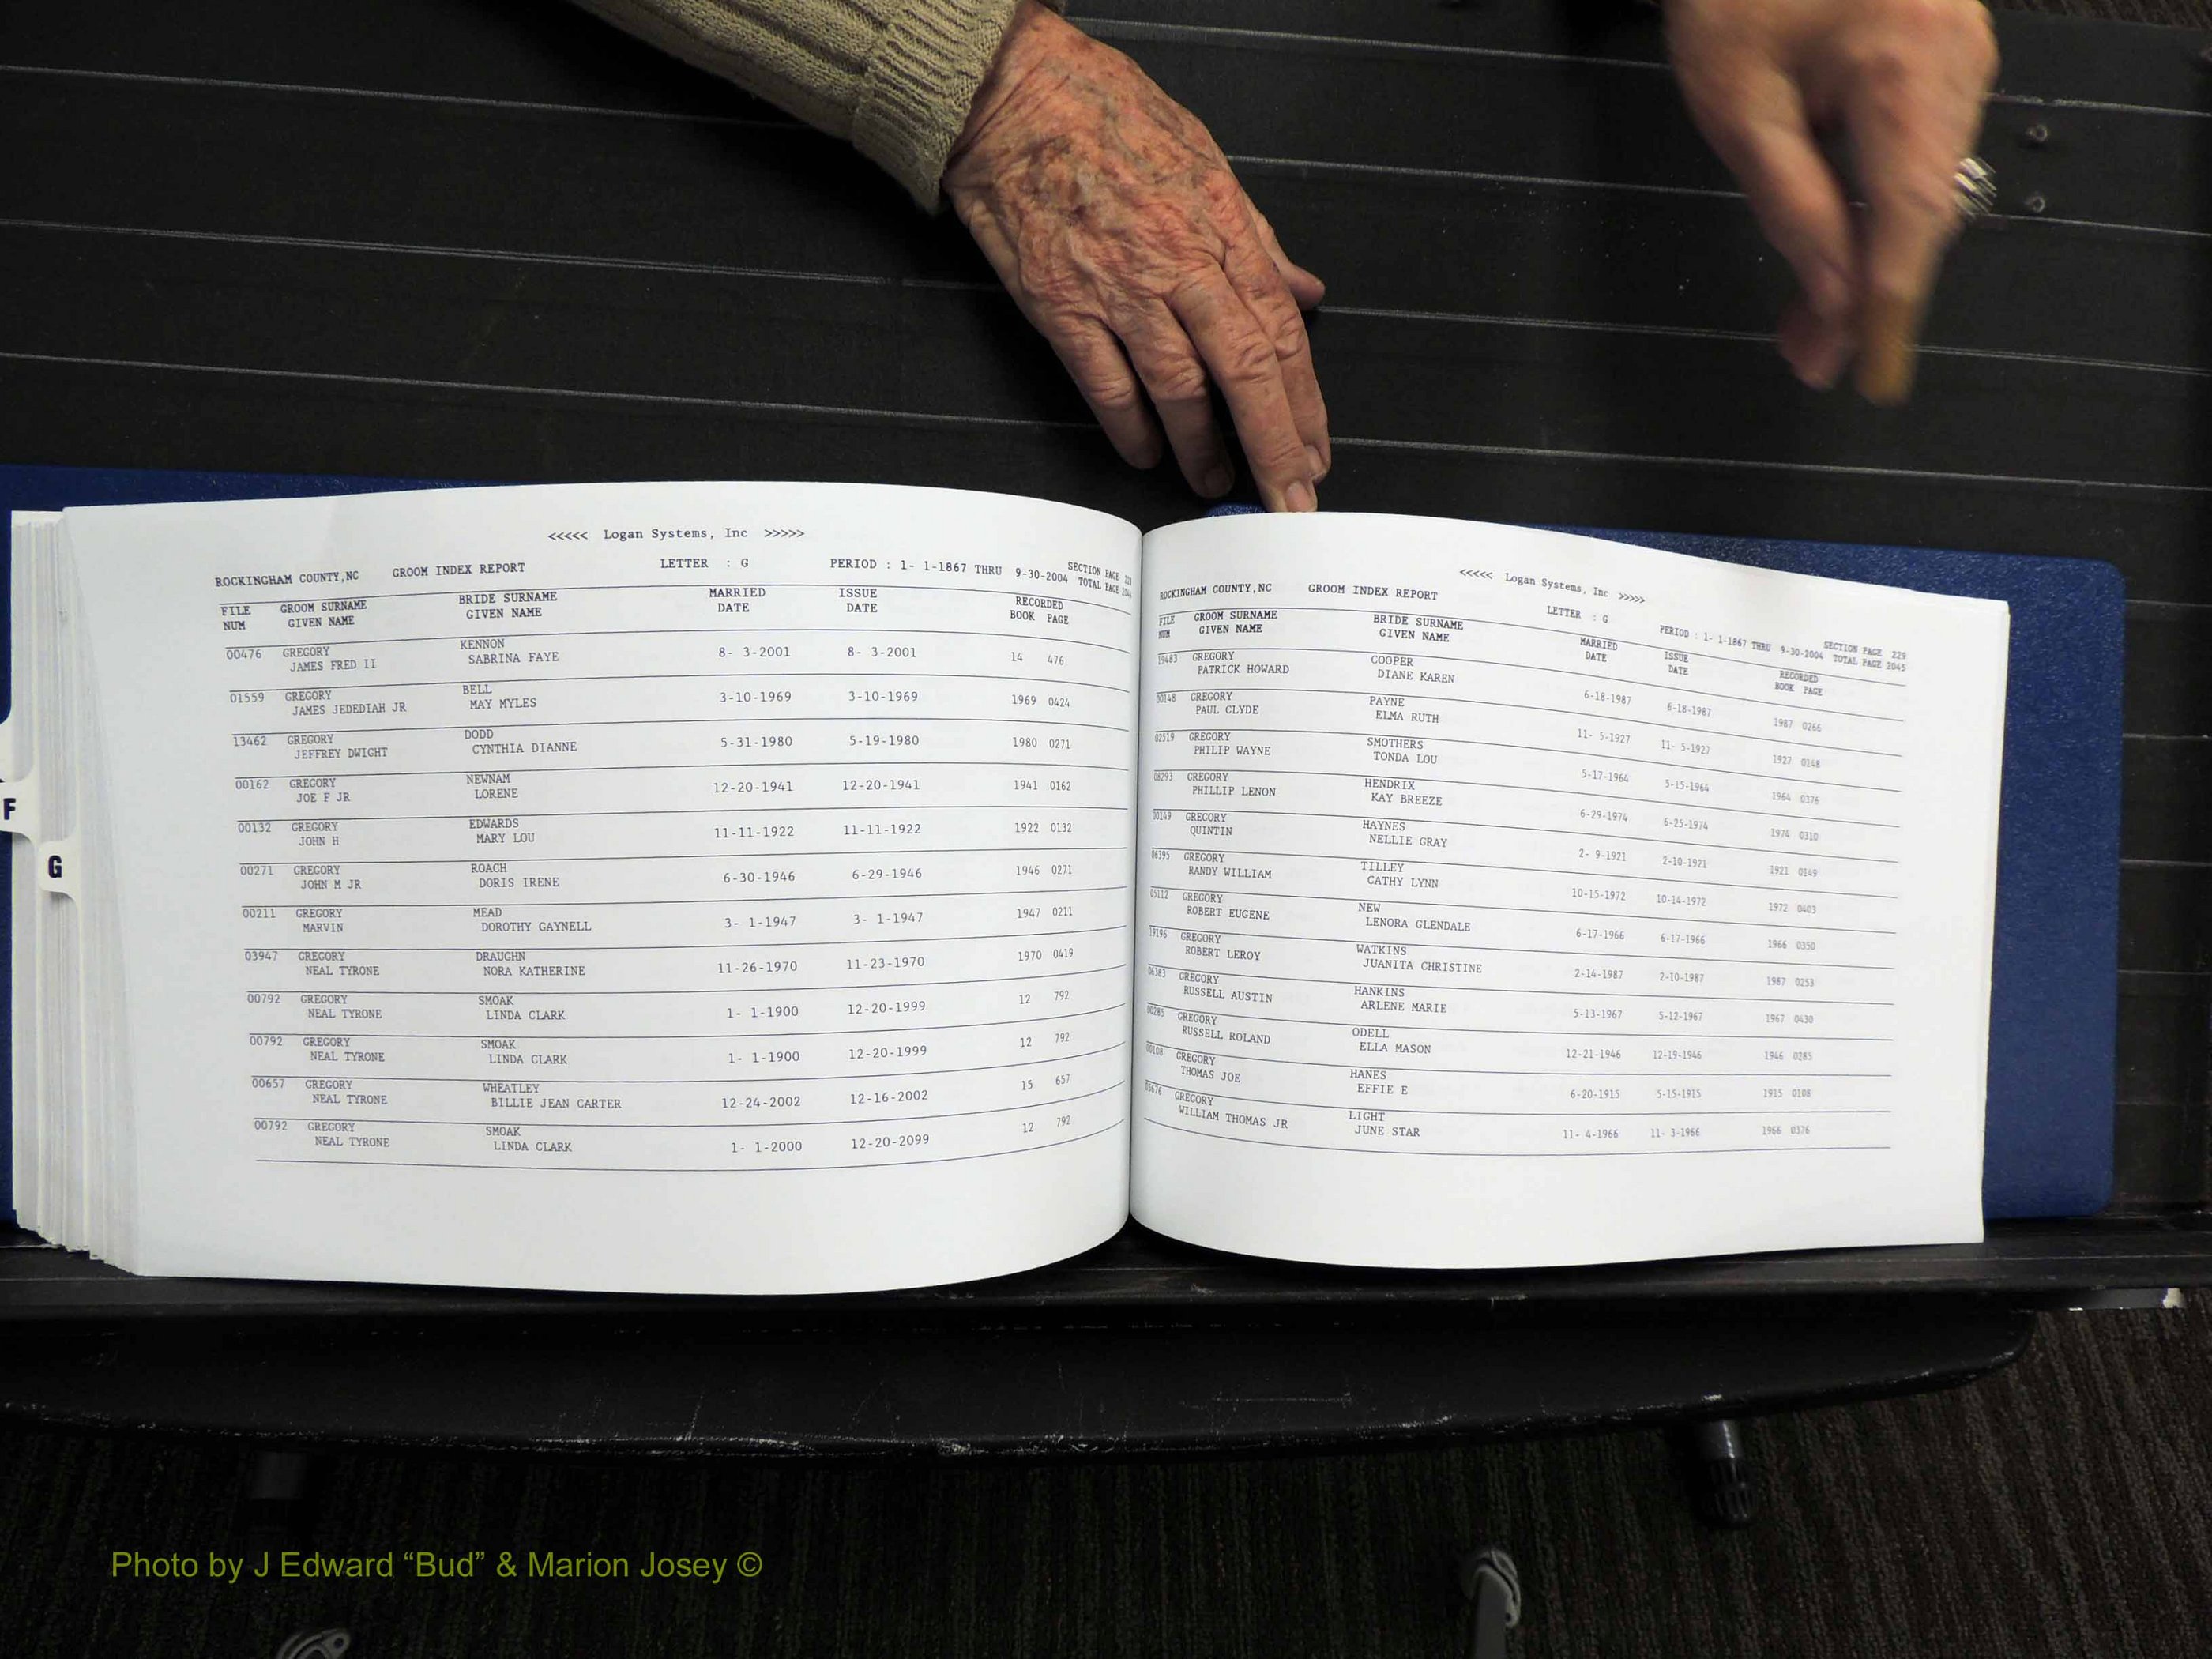 <<<<< Logan Systems, Inc >>>>>
ROCKINGHAM COUNTY,NC GROOM INDEX REPORT LETTER : G PERIOD : 1- 1-1867 THRU 9-30-2004 SECTION PAGE
TOTAL PAGE
FILE GROOM SURNAME BRIDE SURNAME MARRIED ISSUE RECORDED
NUM GIVEN NAME GIVEN NAME DATE DATE BOOK PAGE
00476 GREGORY KENNON 8- 3-2001 8- 3-2001 14 476
JAMES FRED II SABRINA FAYE
01559 GREGORY BELL 3-10-1969 3-10-1969 1969 0424
JAMES JEDEDIAH JR MAY MYLES
13462 GREGORY DODD 5-31-1980 5-19-1980 1980 0271
JEFFREY DWIGHT CYNTHIA DIANNE
00162 GREGORY NEWNAM 12-20-1941 12-20-1941 1941 0162
JOE F JR LORENE
00132 GREGORY EDWARDS 11-11-1922 11-11-1922 1922 0132
JOHN H MARY LOU
00271 GREGORY ROACH 6-30-1946 6-29-1946 1946 0271
JOHN M JR DORIS IRENE
00211 GREGORY MEAD 3- 1-1947 3- 1-1947 1947 0211
MARVIN DOROTHY GAYNELL
03947 GREGORY DRAUGHN 11-26-1970 11-23-1970 1970 0419
NEAL TYRONE NORA KATHERINE
00792 GREGORY SMOAK 1- 1-1900 12-20-1999 12 792
NEAL TYRONE LINDA CLARK
00792 GREGORY SMOAK 1- 1-1900 12-20-1999 12 792
NEAL TYRONE LINDA CLARK
00657 GREGORY WHEATLEY 12-24-2002 12-16-2002 15 657
NEAL TYRONE BILLIE JEAN CARTER
00792 GREGORY SMOAK 1- 1-2000 12-20-2099 12 792
NEAL TYRONE LINDA CLARK
F
G
<<<<< Logan Systems, Inc >>>>>
ROCKINGHAM COUNTY,NC GROOM INDEX REPORT LETTER : G PERIOD : 1- 1-1867 THRU 9-30-2004 SECTION PAGE 229
TOTAL PAGE 2045
FILE GROOM SURNAME BRIDE SURNAME MARRIED ISSUE RECORDED
NUM GIVEN NAME GIVEN NAME DATE DATE BOOK PAGE
19483 GREGORY COOPER 6-18-1987 6-18-1987 1987 0266
PATRICK HOWARD DIANE KAREN
00148 GREGORY PAYNE 11- 5-1927 11- 5-1927 1927 0148
PAUL CLYDE ELMA RUTH
02519 GREGORY SMOTHERS 5-17-1964 5-15-1964 1964 0376
PHILIP WAYNE TONDA LOU
08293 GREGORY HENDRIX 6-29-1974 6-25-1974 1974 0310
PHILLIP LENON KAY BREEZE
00149 GREGORY HAYNES 2- 9-1921 2-10-1921 1921 0149
QUINTIN NELLIE GRAY
06395 GREGORY TILLEY 10-15-1972 10-14-1972 1972 0403
RANDY WILLIAM CATHY LYNN
05112 GREGORY NEW 6-17-1966 6-17-1966 1966 0350
ROBERT EUGENE LENORA GLENDALE
19196 GREGORY WATKINS 2-14-1987 2-10-1987 1987 0253
ROBERT LEROY JUANITA CHRISTINE
06383 GREGORY HANKINS 5-13-1967 5-12-1967 1967 0430
RUSSELL AUSTIN ARLENE MARIE
00285 GREGORY ODELL 12-21-1946 12-19-1946 1946 0285
RUSSELL ROLAND ELLA MASON
00108 GREGORY HANES 6-20-1915 5-15-1915 1915 0108
THOMAS JOE EFFIE E
05676 GREGORY LIGHT 11- 4-1966 11- 3-1966 1966 0376
WILLIAM THOMAS JR JUNE STAR
Photo by J Edward “Bud” & Marion Josey ©